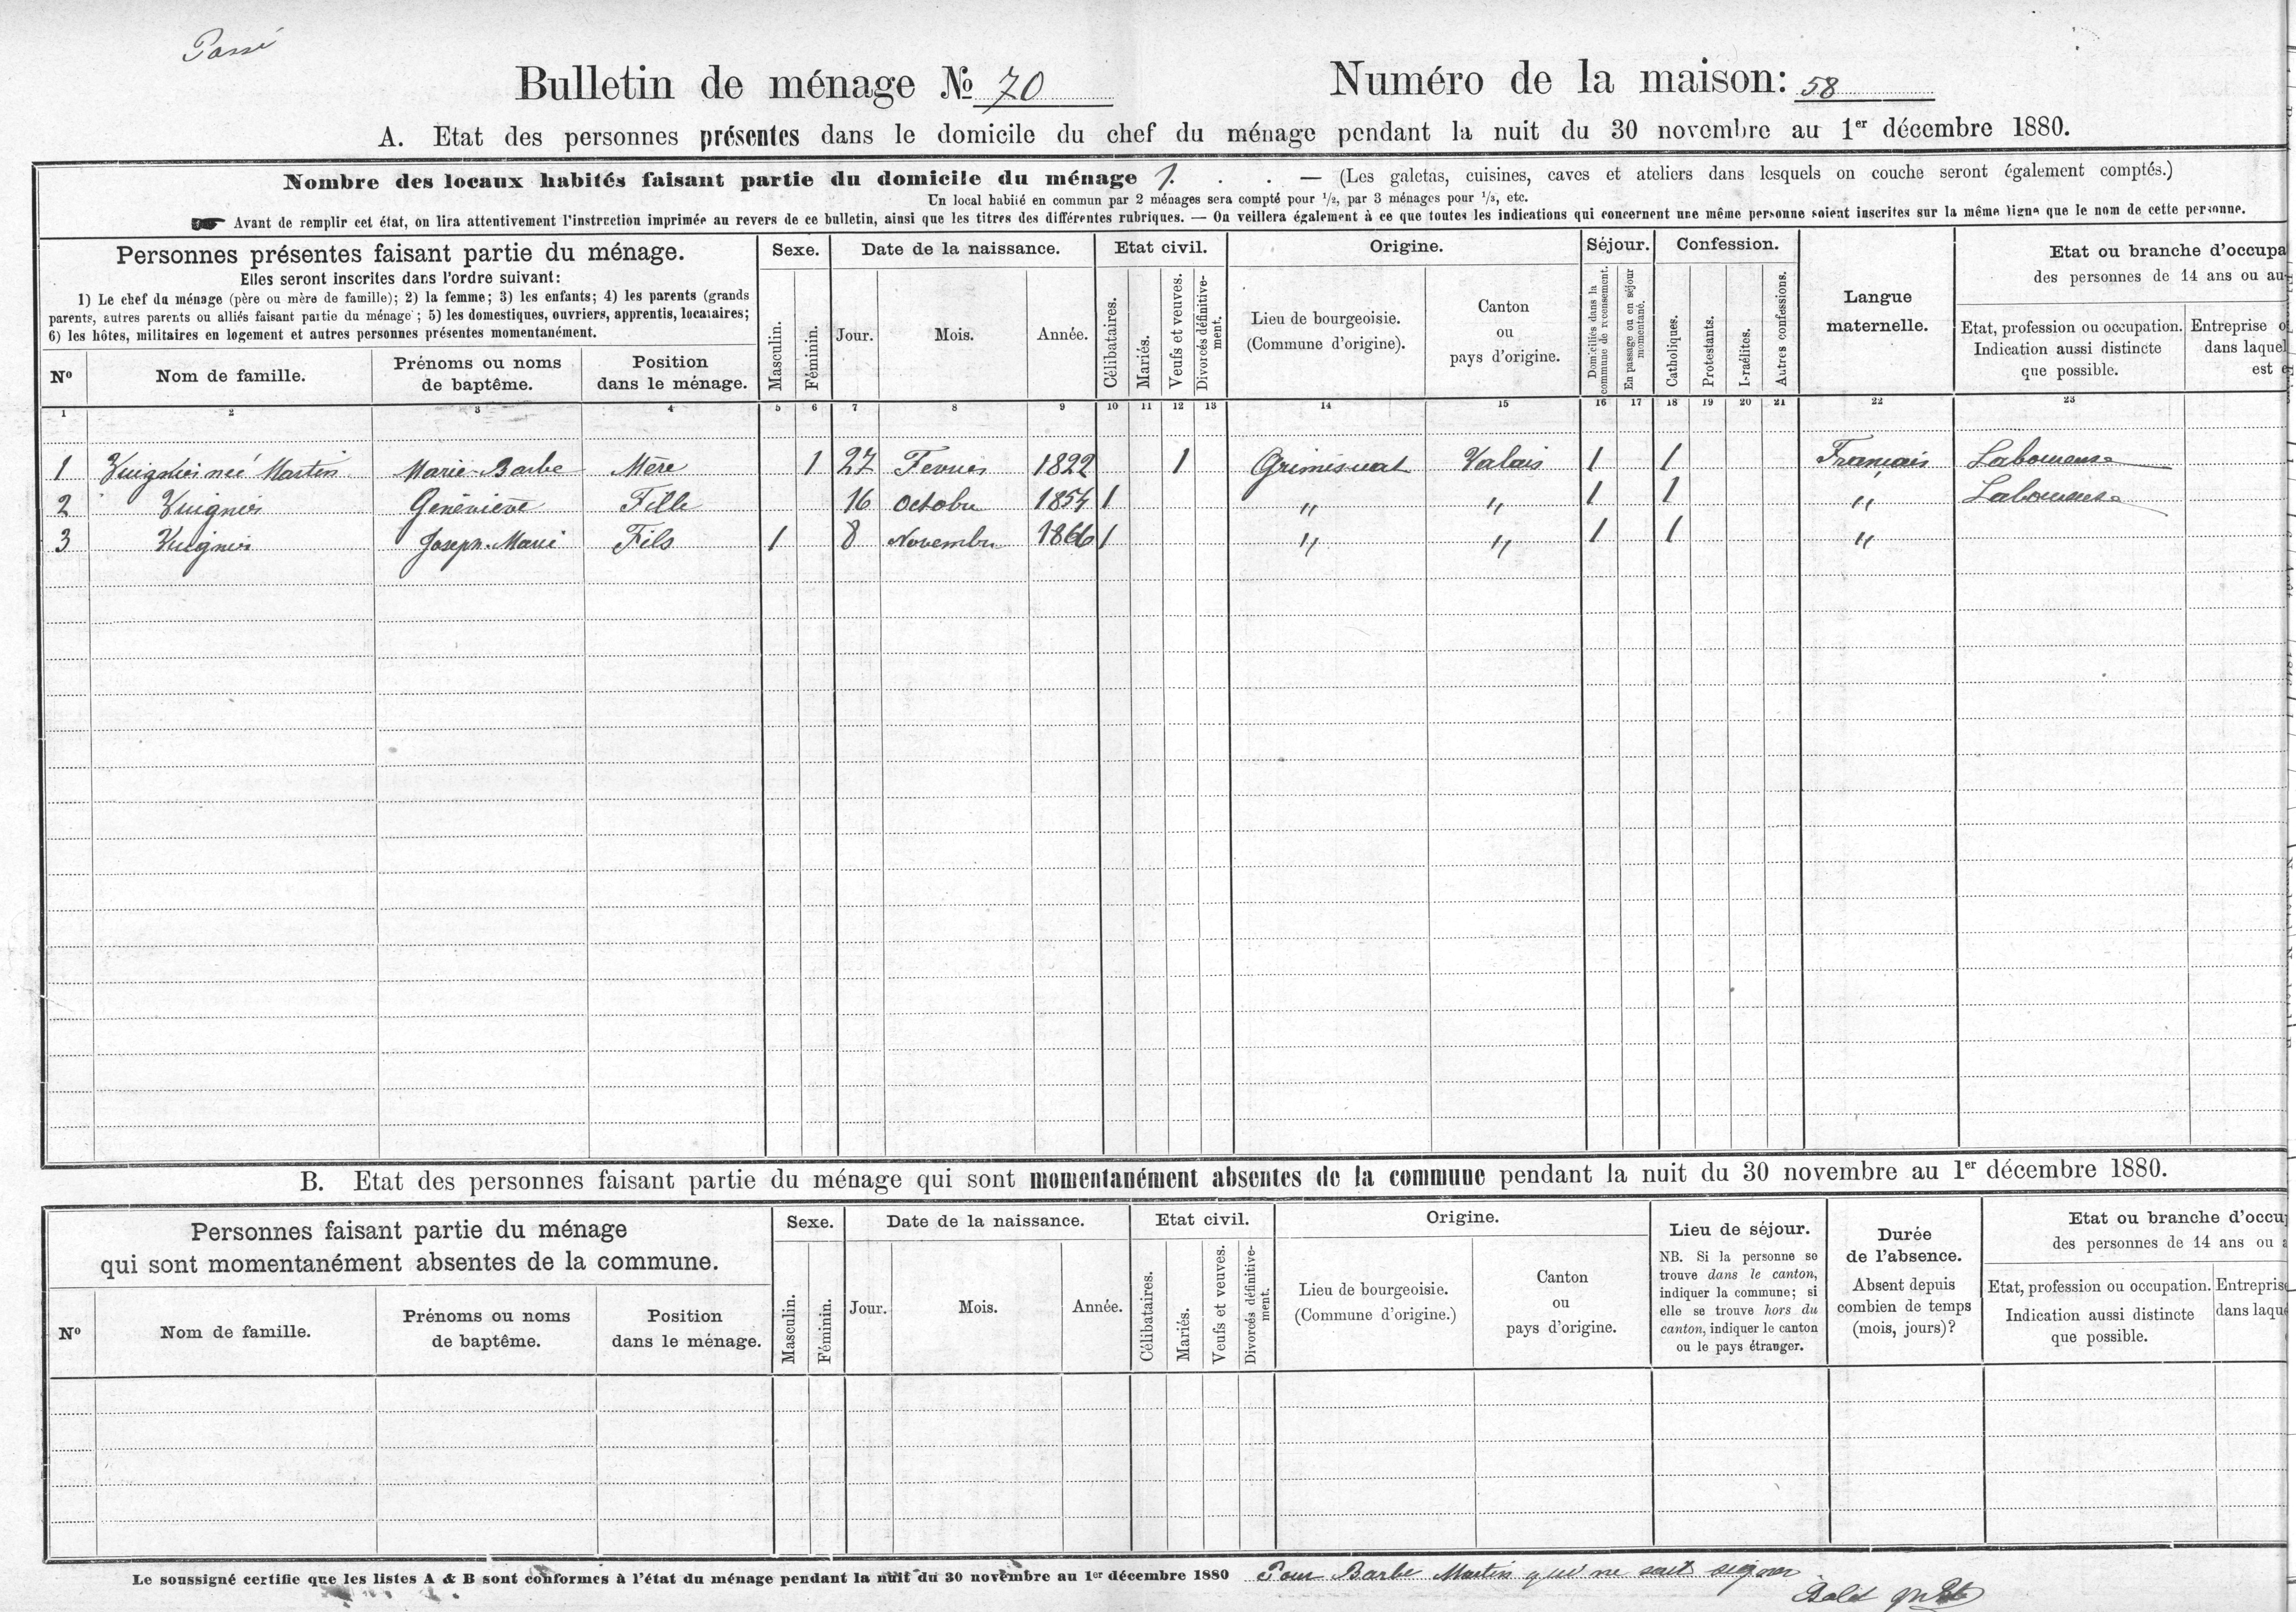 Passé
Bulletin de ménage № 70 Numéro de la maison: 58
A. Etat des personnes présentes dans le domicile du chef du ménage pendant la nuit du 30 novembre au 1er décembre 1880.
Nombre des locaux habités faisant partie du domicile du ménage 1. . . — (Les galetas, cuisines, caves et ateliers dans lesquels on couche seront également comptés.)
Un local habité en commun par 2 ménages sera compté pour 1/2, par 3 ménages pour 1/3, etc.
Avant de remplir cet état, on lira attentivement l'instruction imprimée au revers de ce bulletin, ainsi que les titres des différentes rubriques. — On veillera également à ce que toutes les indications qui concernent une même personne soient inscrites sur la même ligne que le nom de cette personne.
Personnes présentes faisant partie du ménage.
Elles seront inscrites dans l'ordre suivant:
1) Le chef du ménage (père ou mère de famille); 2) la femme; 3) les enfants; 4) les parents (grands
parents, autres parents ou alliés faisant partie du ménage; 5) les domestiques, ouvriers, apprentis, locataires;
6) les hôtes, militaires en logement et autres personnes présentes momentanément.
No Nom de famille. Prénoms ou noms de baptême. Position dans le ménage.
Sexe. Masculin. Féminin.
Date de la naissance. Jour. Mois. Année.
Etat civil. Célibataires. Mariés. Veufs et veuves. Divorcés définitive-ment.
Origine. Lieu de bourgeoisie. (Commune d'origine). Canton ou pays d'origine.
Séjour. Domiciliés dans la commune de recensement. En passage ou en séjour momentané.
Confession. Catholiques. Protestants. Israélites. Autres confessions.
Langue maternelle.
Etat ou branche d'occupa
des personnes de 14 ans ou au
Etat, profession ou occupation. Indication aussi distincte que possible.
Entreprise o
dans laquel
est e
1 2 3 4 5 6 7 8 9 10 11 12 13 14 15 16 17 18 19 20 21 22 23
1 Vuignier née Martin Marie-Barbe Mère 1 27 Fevrier 1822 1 Grimisuat Valais 1 1 Francais Laboureuse
2 Vuignier Géneviève Fille 16 Octobre 1854 1 " " 1 1 " Laboureuse
3 Vuignier Joseph-Marie Fils 1 8 Novembre 1866 1 " " 1 1 "
B. Etat des personnes faisant partie du ménage qui sont momentanément absentes de la commune pendant la nuit du 30 novembre au 1er décembre 1880.
Personnes faisant partie du ménage
qui sont momentanément absentes de la commune.
No Nom de famille. Prénoms ou noms de baptême. Position dans le ménage.
Sexe. Masculin. Féminin.
Date de la naissance. Jour. Mois. Année.
Etat civil. Célibataires. Mariés. Veufs et veuves. Divorcés définitive-ment.
Origine. Lieu de bourgeoisie. (Commune d'origine.) Canton ou pays d'origine.
Lieu de séjour.
NB. Si la personne se
trouve dans le canton,
indiquer la commune; si
elle se trouve hors du
canton, indiquer le canton
ou le pays étranger.
Durée
de l'absence.
Absent depuis
combien de temps
(mois, jours)?
Etat ou branche d'occu
des personnes de 14 ans ou a
Etat, profession ou occupation. Indication aussi distincte que possible.
Entreprise
dans laque
Le soussigné certifie que les listes A & B sont conformes à l'état du ménage pendant la nuit du 30 novembre au 1er décembre 1880 Pour Barbe Martin qui ne sait signer